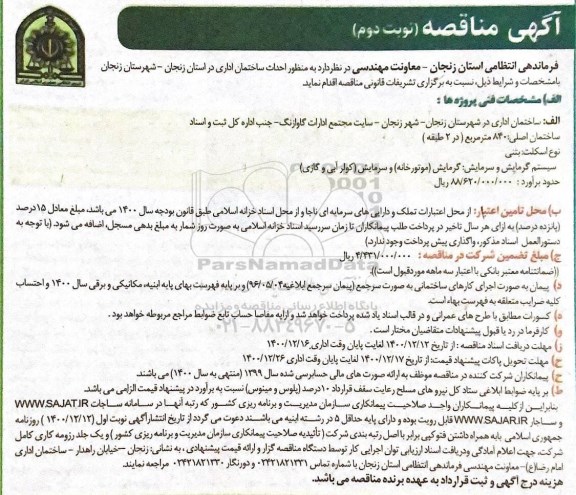 آگهی مناقصه (نوبت دوم)
فرماندهی انتظامی استان زنجان - معاونت مهندسی در نظر دارد به منظور احداث ساختمان اداری در استان زنجان - شهرستان زنجان
بامشخصات و شرایط ذیل، نسبت به برگزاری تشریفات قانونی مناقصه اقدام نماید.
الف) مشخصات فنی پروژه ها :
الف: ساختمان اداری در شهرستان زنجان - شهر زنجان - سایت مجتمع ادارات گاوازنگ - جنب اداره کل ثبت و اسناد
ساختمان اصلی: ۸۴۰ مترمربع ( در ۲ طبقه )
نوع اسکلت: بتنی
سیستم گرمایش و سرمایش: گرمایش (موتورخانه) و سرمایش (کولر آبی و گازی)
حدود برآورد : ۸۸/۶۲۰/۰۰۰/۰۰۰ ریال
ب) محل تامین اعتبار: از محل اعتبارات تملک و دارایی های سرمایه ای ناجا و از محل اسناد خزانه اسلامی طبق قانون بودجه سال ۱۴۰۰ می باشد، مبلغ معادل ۱۵درصد
(پانزده درصد) به ازای هر سال تاخیر در پرداخت طلب پیمانکاران تا زمان سررسید اسناد خزانه اسلامی به صورت روز شمار به مبلغ بدهی مسجل، اضافه می شود. (با توجه به
دستورالعمل اسناد مذکور، واگذاری پیش پرداخت وجود ندارد)
ج) مبلغ تضمین شرکت در مناقصه : ۴/۴۳۱/۰۰۰/۰۰۰ ریال
((ضمانتنامه معتبر بانکی با اعتبار سه ماهه مورد قبول است)).
د) پیمان به صورت اجرای کارهای ساختمانی به صورت سرجمع (پیمان سرجمع ابلاغیه ۹۶/۰۵/۰۴) و بر پایه فهرست بهای پایه ابنیه، مکانیکی و برقی سال ۱۴۰۰ و احتساب
کلیه ضرایب متعلقه به فهرست بهاء است.
ه) کسورات مطابق با طرح های عمرانی و در قالب اسناد یاد شده پرداخت خواهد شد و ارایه مفاصا حساب تابع ضوابط مراجع مربوطه خواهد بود .
و) کارفرما در رد یا قبول پیشنهادات متقاضیان مختار است .
ز) مهلت دریافت اسناد مناقصه : از تاریخ ۱۴۰۰/۱۲/۱۲ لغایت پایان وقت اداری ۱۴۰۰/۱۲/۱۶
ح) مهلت تحویل پاکات پیشنهاد قیمت: از تاریخ ۱۴۰۰/۱۲/۱۷ لغایت پایان وقت اداری ۱۴۰۰/۱۲/۲۶
خ) پیمانکاران شرکت کننده در مناقصه موظف به ارائه صورت های مالی حسابرسی شده سال ۱۳۹۹ (منتهی به سال ۱۴۰۰) می باشند.
ط) بر پایه ضوابط ابلاغی ستاد کل نیرو های مسلح رعایت سقف قرارداد ۱۰درصد (پلوس و مینوس) نسبت به برآورد در پیشنهاد قیمت الزامی می باشد.
بنابراین از کلیه پیمانکاران واجد صلاحیت پیمانکاری سازمان مدیریت و برنامه ریزی کشور که رتبه آنها در سامانه ساجات WWW.SAJAT.IR
و ساجار WWW.SAJAR.IR قابل رویت بوده و دارای پایه حداقل ۵ در رشته ابنیه می باشند دعوت می گردد از تاریخ انتشار آگهی نوبت اول (۱۴۰۰/۱۲/۱۲) روزنامه
جمهوری اسلامی با به همراه داشتن فتوکپی برابر با اصل رتبه بندی شرکت (تأئیدیه صلاحیت پیمانکاری سازمان مدیریت و برنامه ریزی کشور) و یک جلد رزومه کاری کامل
شرکت، جهت اعلام آمادگی و دریافت اسناد ارزیابی توان اجرایی کار توسط دستگاه مناقصه گزار و ارائه قیمت پیشنهادی ، به نشانی: زنجان - خیابان راهدار - ساختمان اداری
امام رضا(ع) - معاونت مهندسی فرماندهی انتظامی استان زنجان با شماره تماس ۰۲۴۲۱۸۲۱۳۳۱ و دورنگار ۰۲۴۲۱۸۲۱۳۳۰ مراجعه نمایند.
هزینه درج آگهی و ثبت قرارداد به عهده برنده مناقصه می باشد.
ParsNamadData
پایگاه اطلاع رسانی مناقصه و مزایده
۰۲۱-۸۸۳۴۹۶۷۰-۵